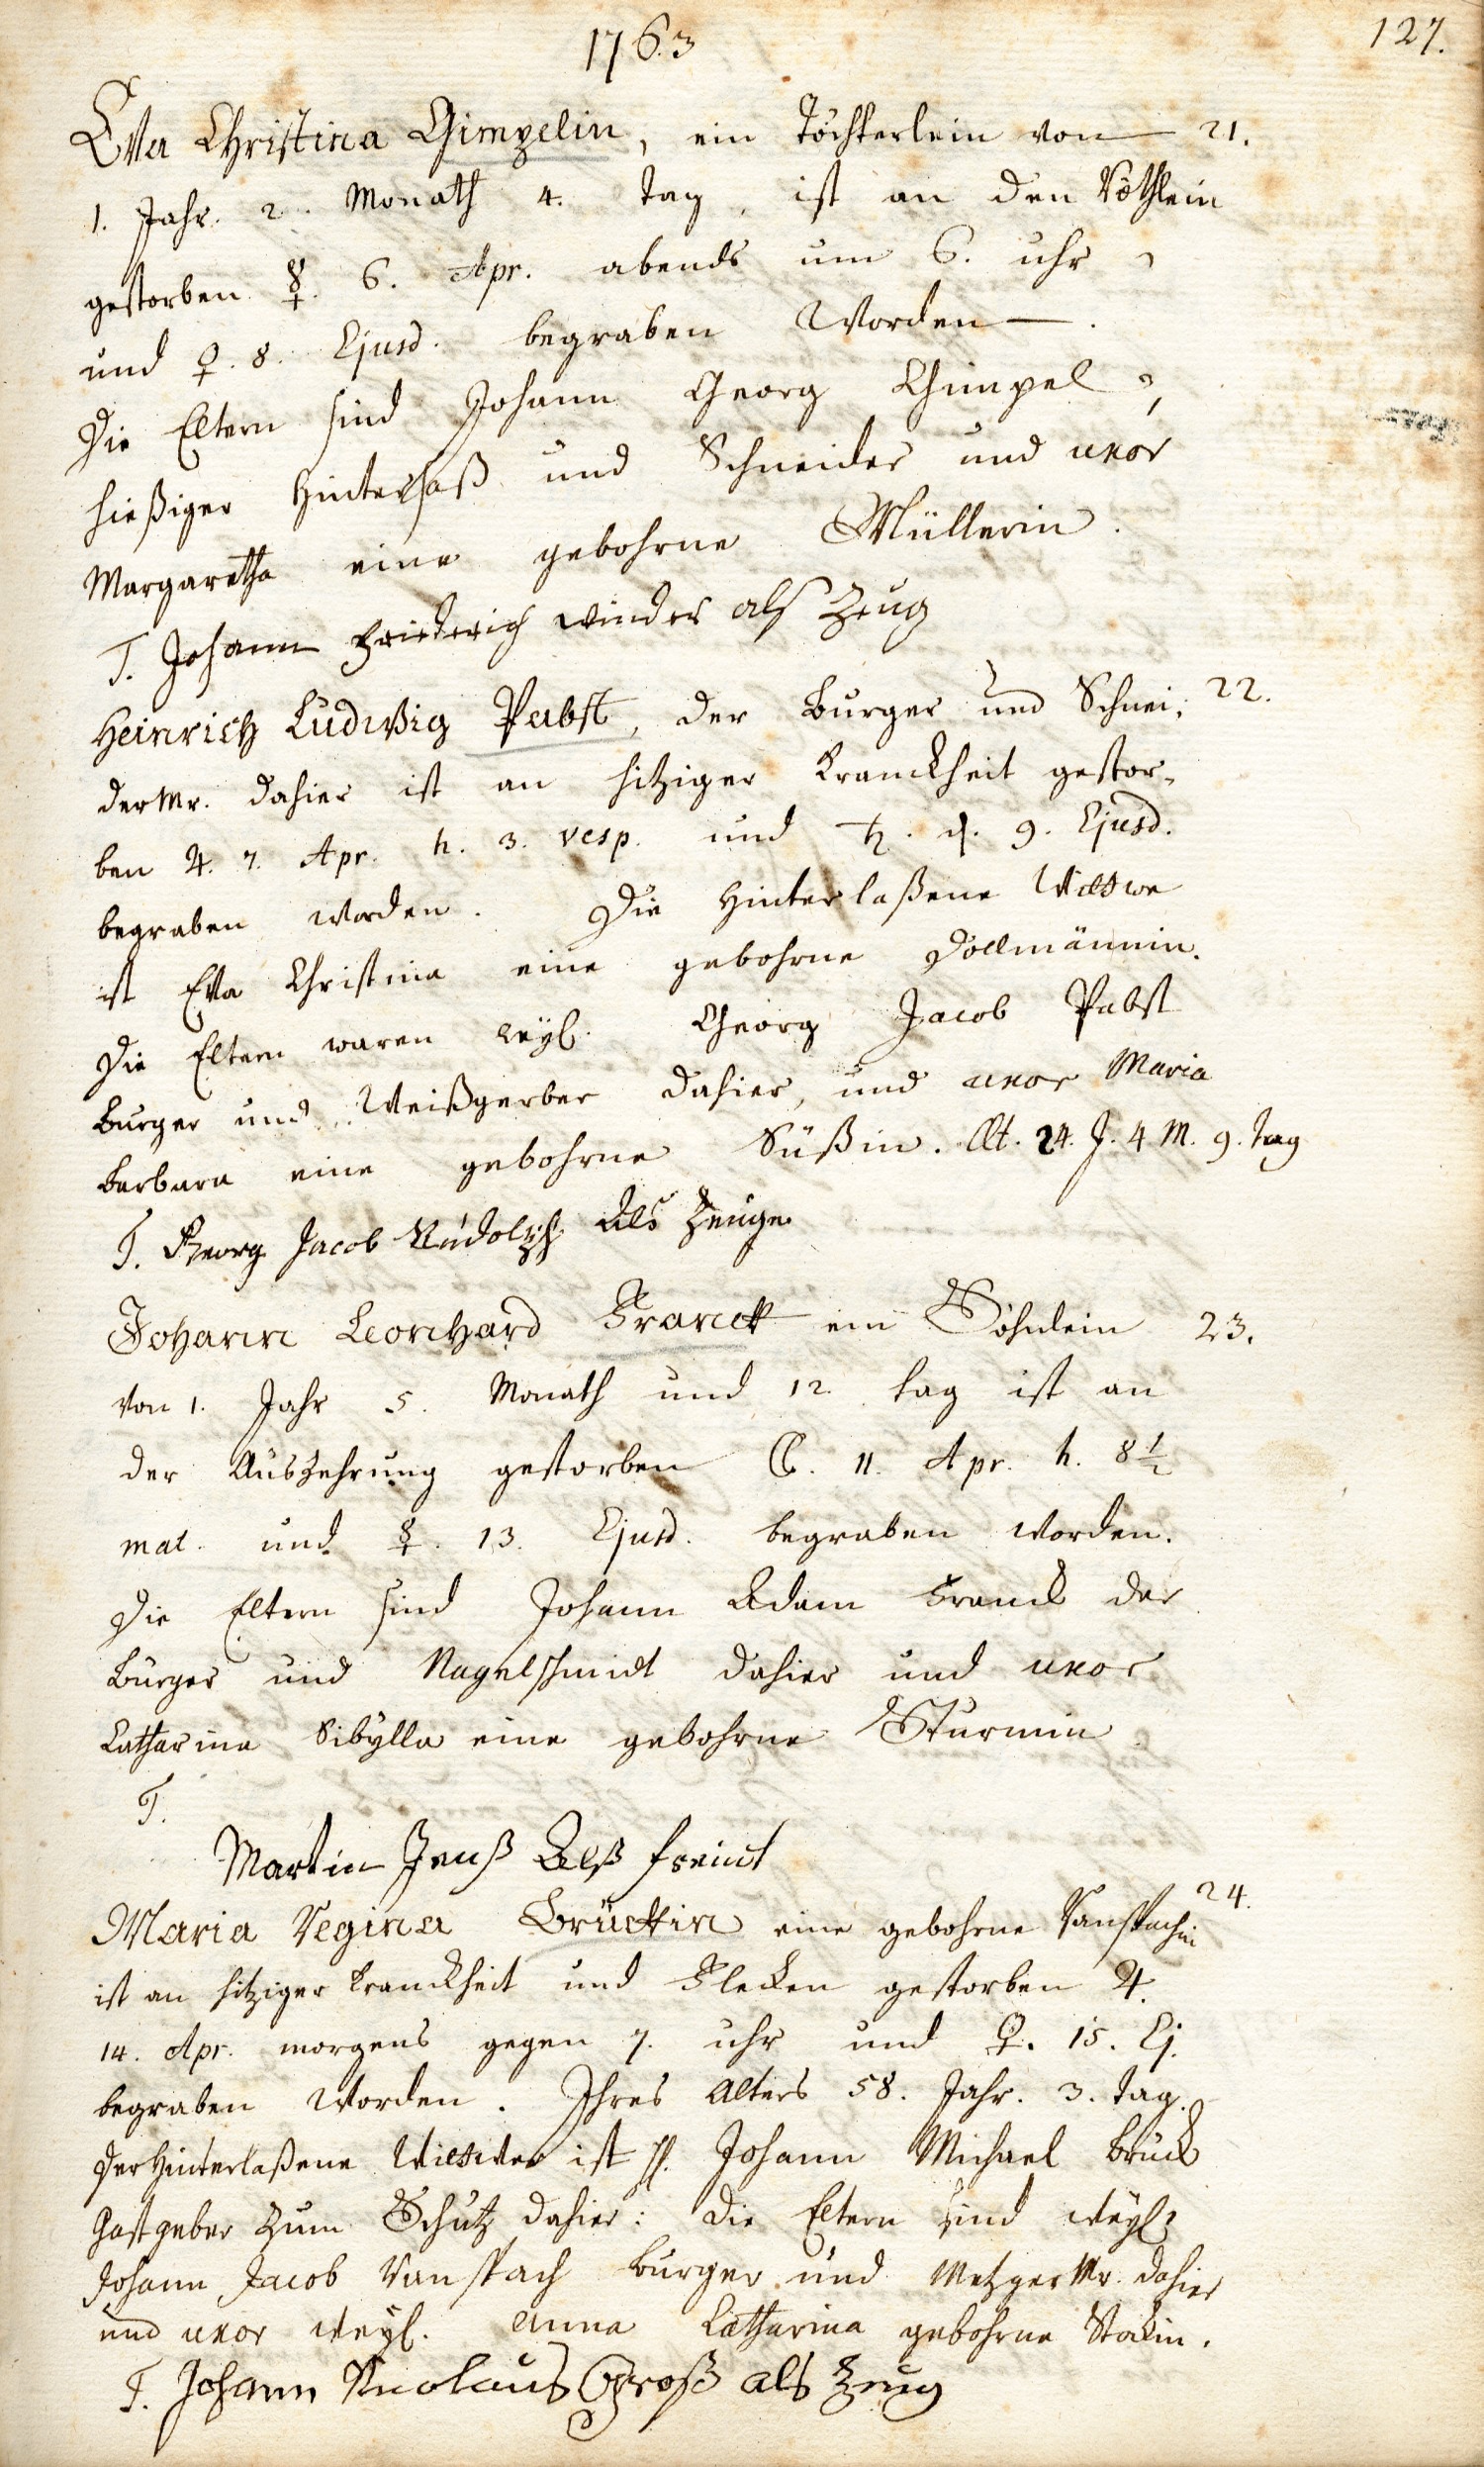 1763
127.
Eva Christina Gimpelin, ein Töchterlein von 21.
1. Jahr 2. Monath 4. tag, ist an den Röthlein
gestorben ☿. 6. Apr. abends um 6. uhr,
und ♀. 8. Ejusd. begraben worden.
Die Eltern sind Johann Georg Gimpel,
hießiger Hintersaß und Schneider und uxor
Margaretha eine gebohrne Müllerin.
T. Johann Friederich als Zeug
Heinrich Ludwig Pabst, der Burger und Schnei- 22.
der Mr. dahier ist an hitziger Kranckheit gestor-
ben ♃. 7. Apr. h. 3. vesp. und ♄. d. 9. Ejusd.
begraben worden. Die Hinterlaßene Wittwe
ist Eva Christina eine gebohrne Döllmännin.
Die Eltern waren weyl. Georg Jacob Pabst
Burger und Weißgerber dahier, und uxor Maria
Barbara eine gebohrne Süßin. Æt. 24. J. 4 M. 9. tag
T. Georg Jacob Rudolph als Zeuge
Johann Leonhard Franck ein Söhnlein 23.
von 1. Jahr 5. Monath und 12. tag ist an
der Auszehrung gestorben ☾. 11. Apr. h. 8½
mat. und ☿. 13. Ejusd. begraben worden.
Die Eltern sind Johann Adam Franck der
Burger und Nagelschmidt dahier und uxor
Catharina Sibylla eine gebohrne Sturmin
T.
Martin Alß freint
Maria Regina Brückin eine gebohrne Ranspachin 24.
ist an hitziger Kranckheit und Flecken gestorben ♃.
14. Apr. morgens gegen 7. uhr und ♀. 15. Ej.
begraben worden. Ihres Alters 58. Jahr. 3. tag.
Der Hinterlaßene Wittwer ist H. Johann Michael Brück
Gastgeber zum Schutz dahier: die Eltern sind weyl.
Johann Jacob Ranspach Burger und Metzger Mr. dahier
und uxor weyl. Anna Catharina gebohrne Stockin.
T. Johann Nicolaus Groß als Zeug